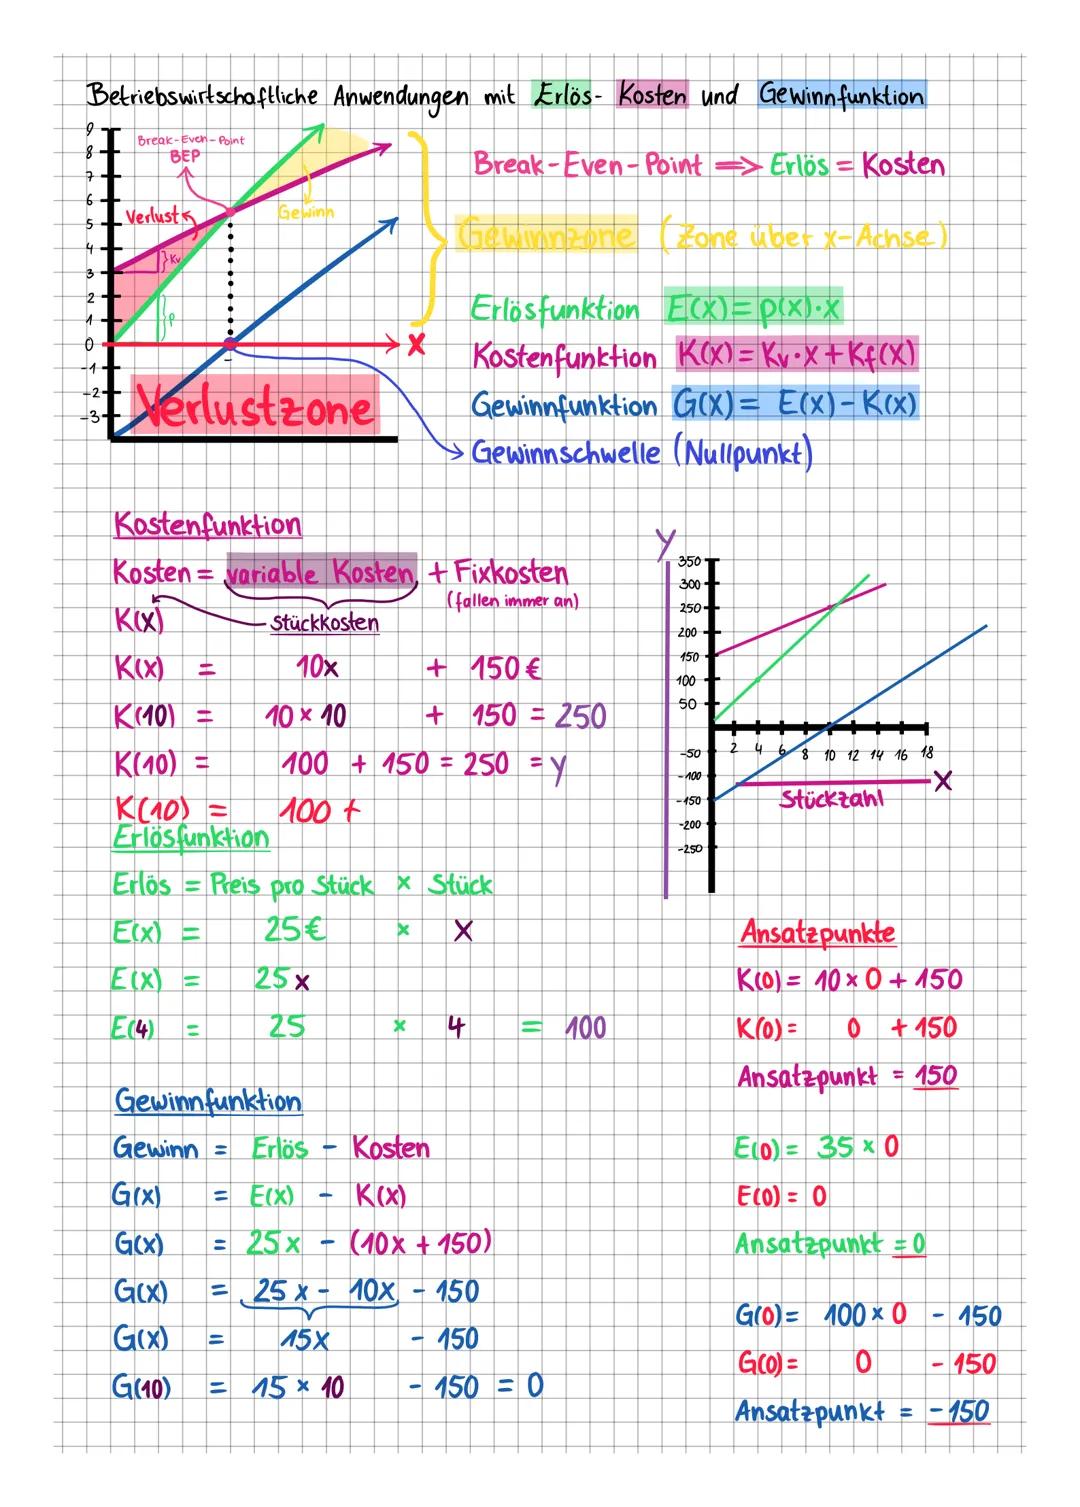 Betriebswirtschaftliche Anwendungen mit Erlös- Kosten und Gewinnfunktion
9
8
7
6
5
4
3
2
1
0
-1
-2
-3
Break-Even-Point
BEP
Verlust
Gewinn
} Kv
} p
x
Verlustzone
Break-Even-Point ⟹ Erlös = Kosten
Gewinnzone (Zone über x-Achse)
Erlösfunktion E(x) = p(x)·x
Kostenfunktion K(x) = Kv·x + Kf(x)
Gewinnfunktion G(x) = E(x) - K(x)
Gewinnschwelle (Nullpunkt)
Kostenfunktion
Kosten = variable Kosten + Fixkosten
(fallen immer an)
K(x) Stückkosten
K(x) = 10x + 150€
K(10) = 10 × 10 + 150 = 250
K(10) = 100 + 150 = 250 = y
K(10) = 100 +
y
350
300
250
200
150
100
50
-50
-100
-150
-200
-250
2 4 6 8 10 12 14 16 18
Stückzahl x
Erlösfunktion
Erlös = Preis pro Stück × Stück
E(x) = 25€ × x
E(x) = 25x
E(4) = 25 × 4 = 100
Gewinnfunktion
Gewinn = Erlös - Kosten
G(x) = E(x) - K(x)
G(x) = 25x - (10x + 150)
G(x) = 25x - 10x - 150
G(x) = 15x - 150
G(10) = 15 × 10 - 150 = 0
Ansatzpunkte
K(0) = 10 × 0 + 150
K(0) = 0 + 150
Ansatzpunkt = 150
E(0) = 35 × 0
E(0) = 0
Ansatzpunkt = 0
G(0) = 100 × 0 - 150
G(0) = 0 - 150
Ansatzpunkt = -150